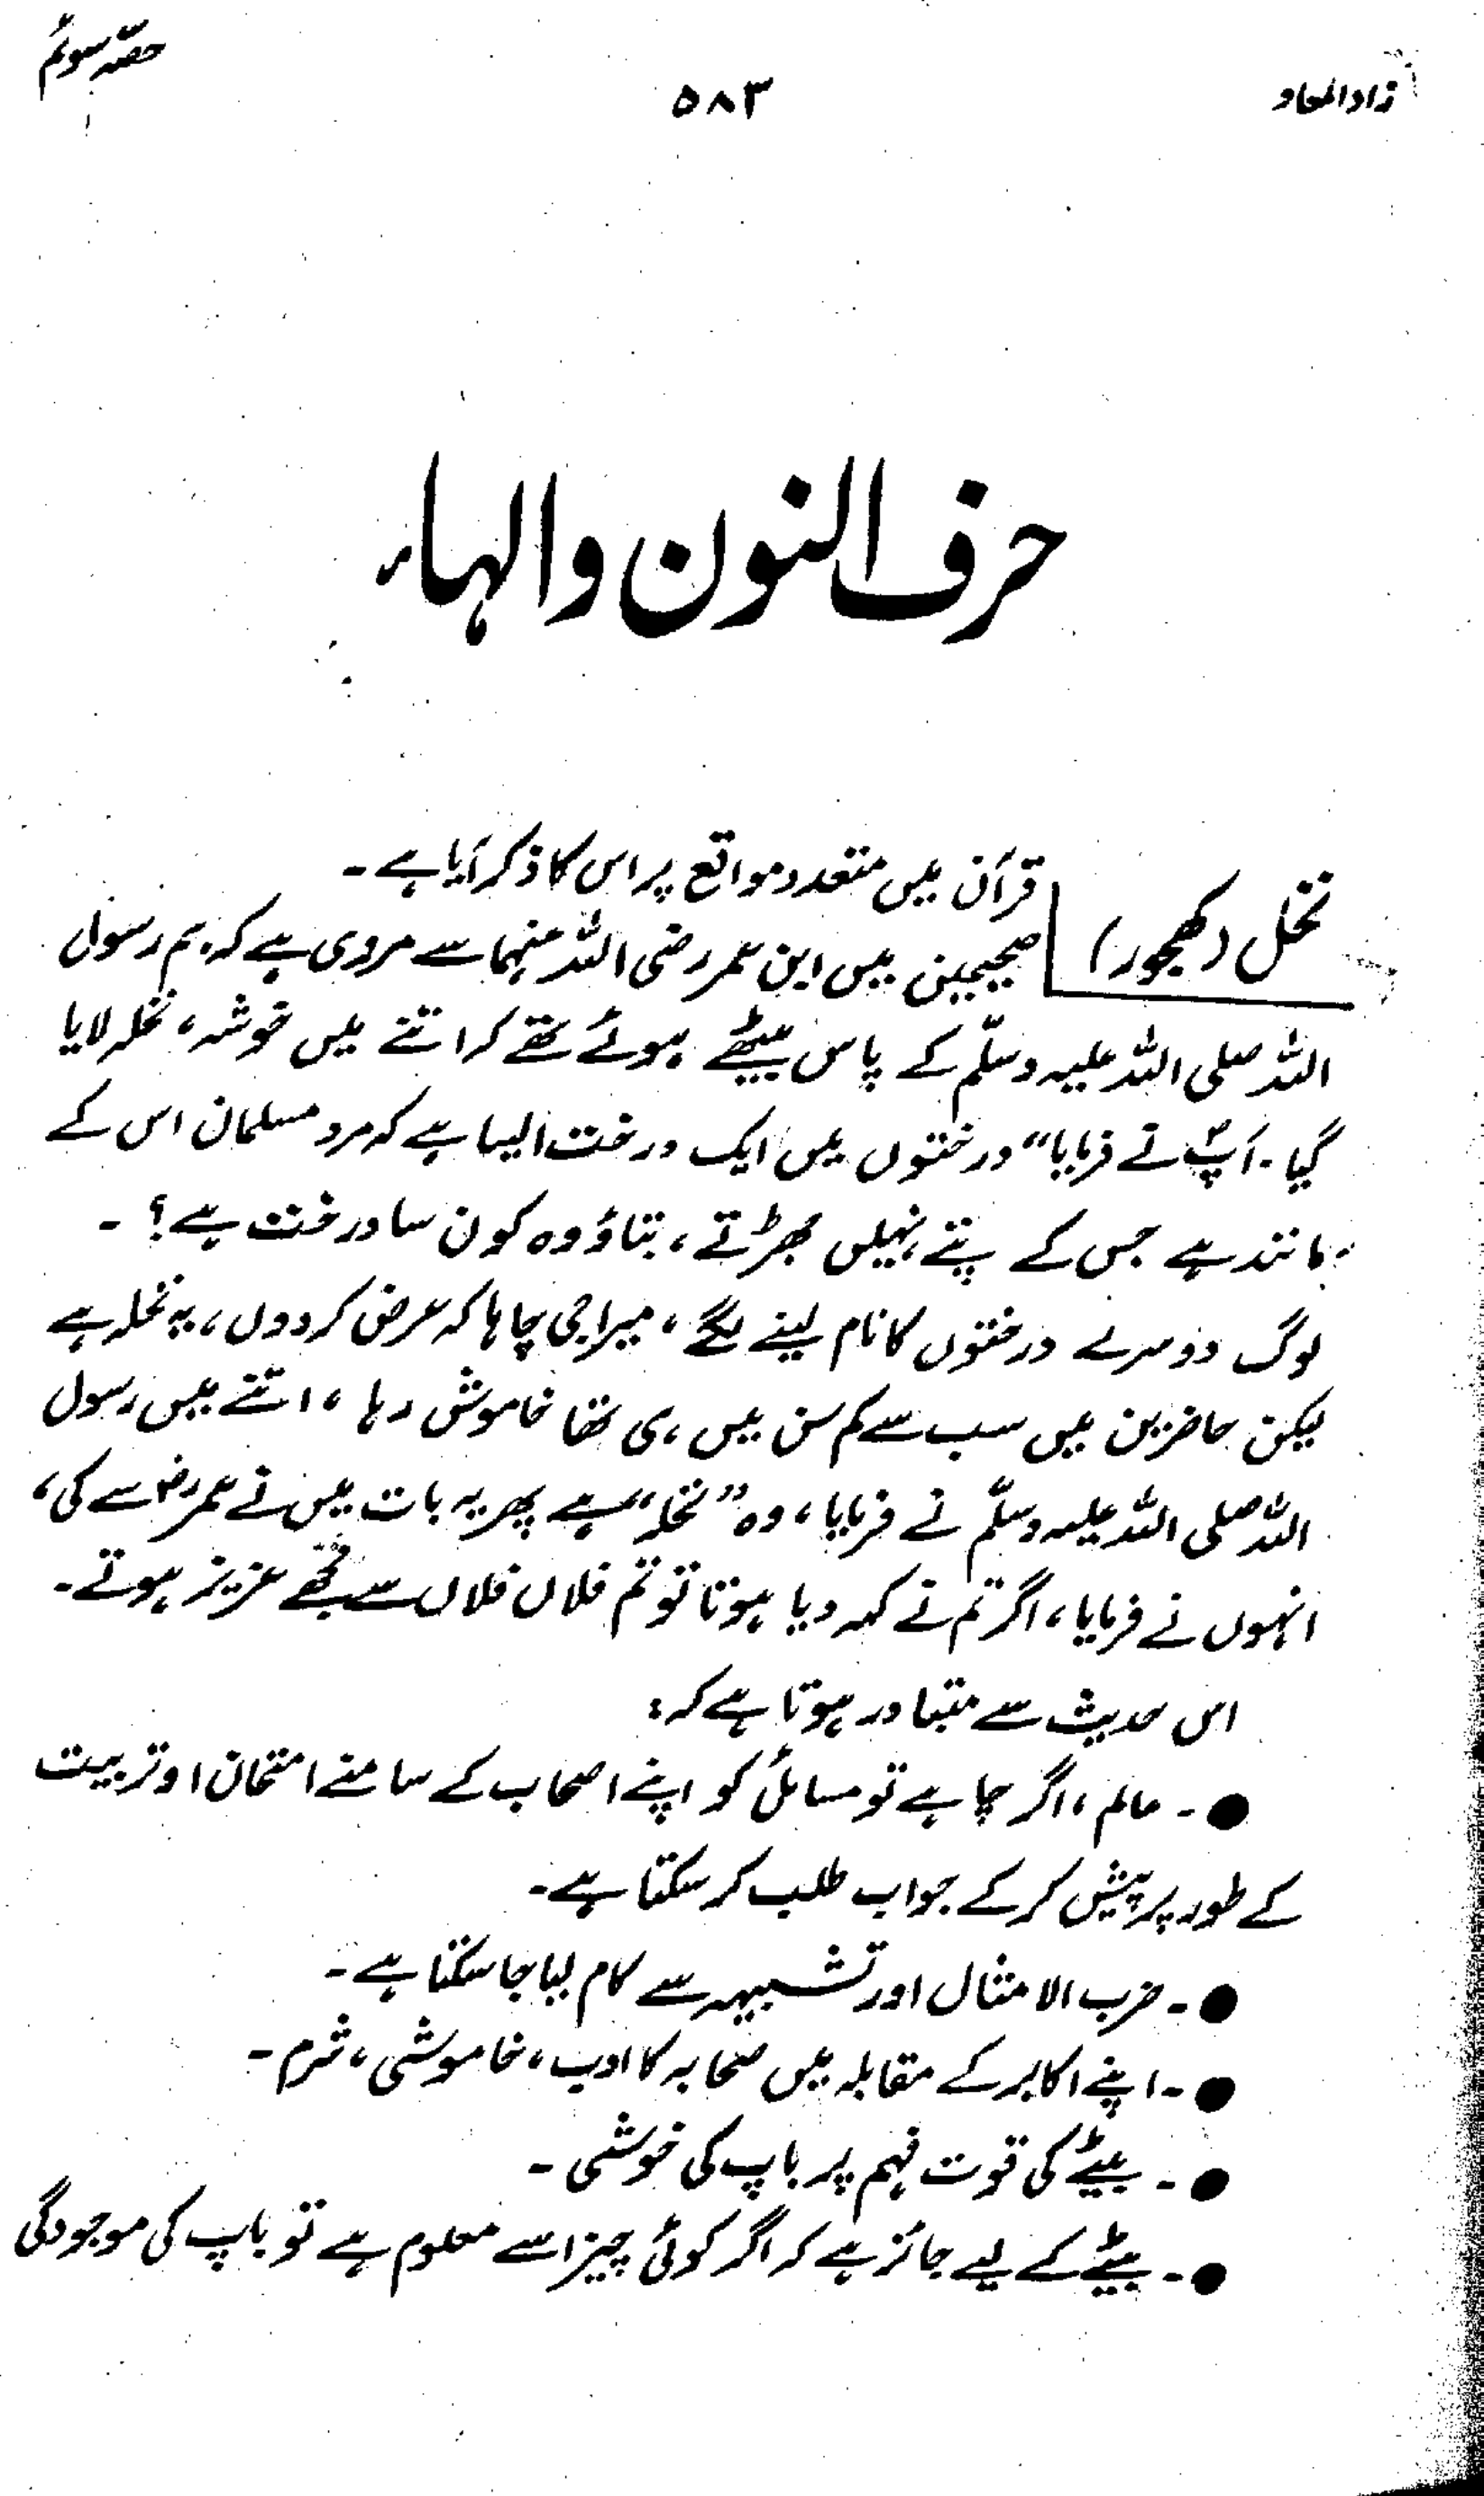 زاد المعاد
۵۸۳
حصّہ سوئم
حرف النون والہاء
نخل (کھجور)
قرآن میں متعدد مواقع پر اس کا ذکر آیا ہے۔
صحیحین میں ابن عمر رضی اللہ عنہما سے مروی ہے کہ ہم رسول
اللہ صلی اللہ علیہ وسلّم کے پاس بیٹھے ہوئے تھے کہ اتنے میں خوشہ، نخلہ لایا
گیا۔ آپؐ نے فرمایا “درختوں میں ایک درخت ایسا ہے کہ مرد مسلمان اس کے
مانند ہے جس کے پتے نہیں جھڑتے، بتاؤ وہ کون سا درخت ہے؟۔
لوگ دوسرے درختوں کا نام لینے لگے، میرا جی چاہا کہ عرض کر دوں، یہ نخلہ ہے
لیکن حاضرین میں سب سے کم سن میں ہی تھا خاموش رہا، اتنے میں رسول
اللہ صلی اللہ علیہ وسلّم نے فرمایا، وہ “نخلہ” ہے پھر یہ بات میں نے عمرؓ سے کی،
انہوں نے فرمایا، اگر تم نے کہہ دیا ہوتا تو تم فلاں فلاں سے مجھے عزیز ہوتے۔
اس حدیث سے متبادر ہوتا ہے کہ:
●۔ عالم، اگر چاہے تو مسائل کو اپنے اصحاب کے سامنے امتحان او تربیت
کے طور پر پیش کر کے جواب طلب کر سکتا ہے۔
●۔ ضرب الامثال اور تشبیہہ سے کام لیا جا سکتا ہے۔
●۔ اپنے اکابر کے مقابلہ میں صحابہ کا ادب، خاموشی، شرم۔
●۔ بیٹے کی قوت فہم پر باپ کی خوشی۔
●۔ بیٹے کے لیے جائز ہے کہ اگر کوئی چیز اسے معلوم ہے تو باپ کی موجودگی